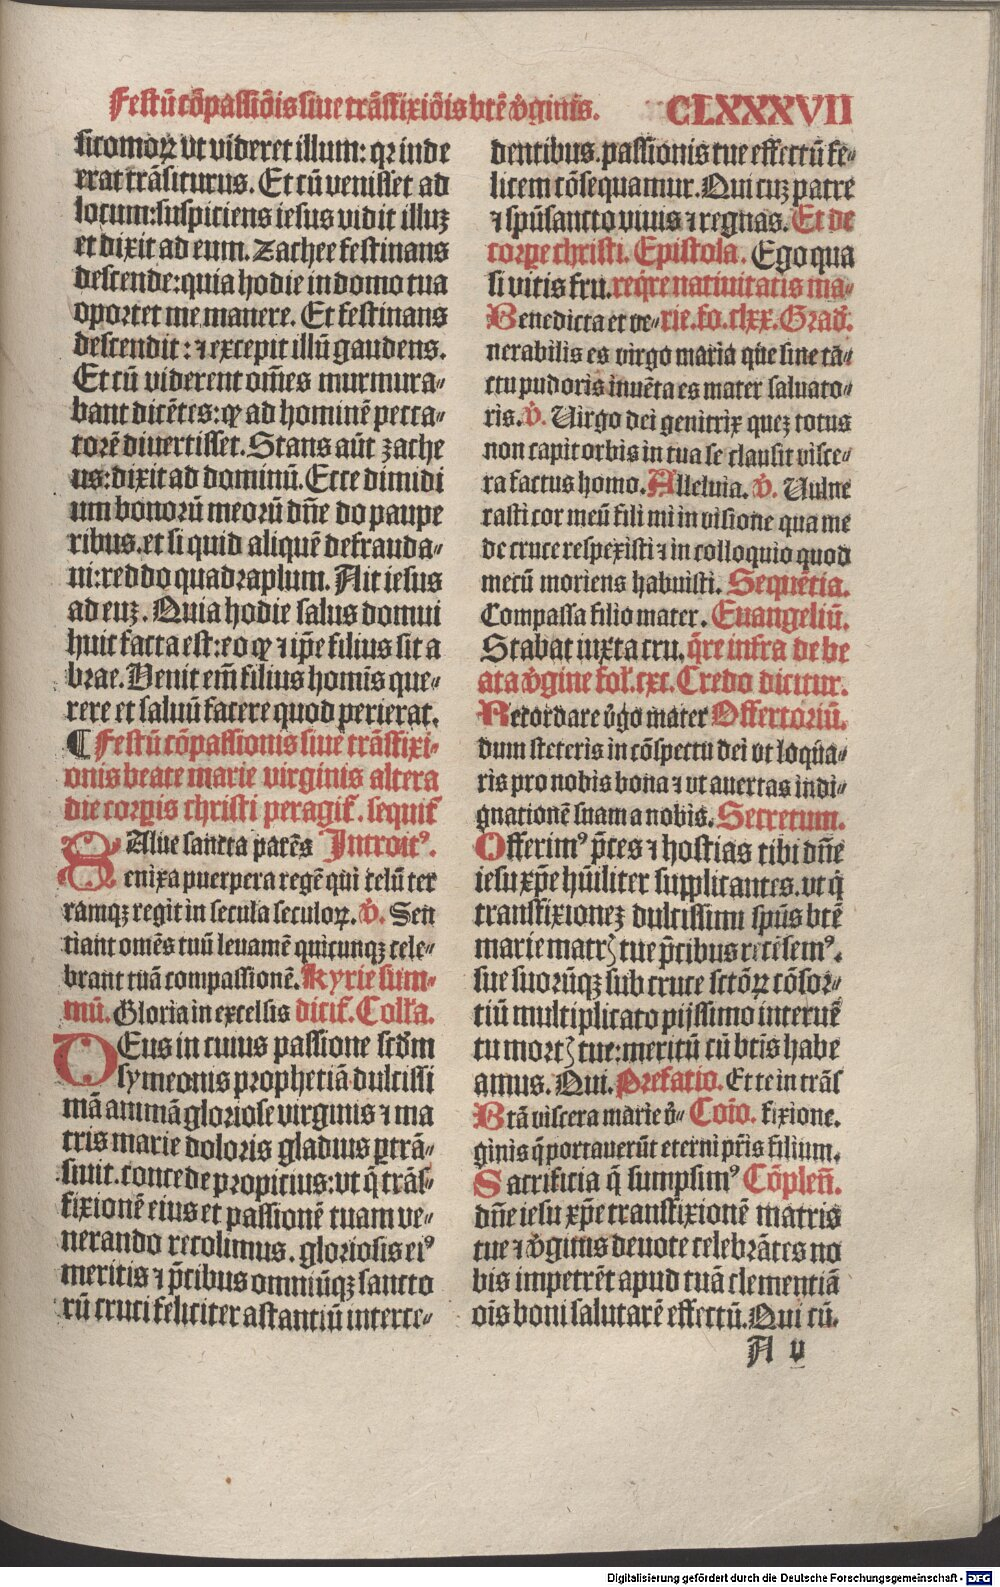 Festū cōpassiōis siue trāsfixiōis btē v̄ginis. CLXXXVII
sicomoꝝ vt videret illum: qꝛ inde
erat trāsiturus. Et cū venisset ad
locum: suspiciens iesus vidit illuꝫ
et dixit ad eum. Zachee festinans
descende: quia hodie in domo tua
oportet me manere. Et festinans
descendit: ⁊ excepit illū gaudens.
Et cū viderent om̄es murmura⸗
bant dicētes: ꝙ ad hominē pecca⸗
torē diuertisset. Stans aūt zache
us: dixit ad dominū. Ecce dimidi
um bonorū meorū dn̄e do paupe
ribus. et si quid aliquē defrauda⸗
ui: reddo quadraplum. Ait iesus
ad euꝫ. Quia hodie salus domui
huic facta est: eo ꝙ ⁊ ip̄e filius sit a
brae. Uenit em̄ filius homīs que⸗
rere et saluū facere quod perierat.
¶ Festū cōpassionis siue trāsfixi⸗
onis beate marie virginis altera
die corꝑis christi peragit̄. sequit̄
SAlue sancta parēs Introitꝰ.
enixa puerpera regē qui celū ter
ramqꝫ regit in secula seculoꝝ. v̄. Sen
tiant omēs tuū leuamē quicunqꝫ cele⸗
brant tuā compassionē. Kyrie sum⸗
mū. Gloria in excelsis dicit̄. Coll̄a.
DEus in cuius passione scd̄m
symeonis prophetiā dulcissi
mā animā gloriose virginis ⁊ ma
tris marie doloris gladius ꝑtrā⸗
siuit. concede propicius: vt q̄ trās⸗
fixionē eius et passionē tuam ve⸗
nerando recolimus. gloriosis eiꝰ
meritis ⁊ p̄cibus omniūqꝫ sancto
rū cruci feliciter astantiū interce⸗
dentibus. passionis tue effectū fe⸗
licem cōsequamur. Qui cuꝫ patre
⁊ spū sancto viuis ⁊ regnas. Et de
corꝑe christi. Epistola. Ego qua
si vitis fru. reqͥre natiuitatis ma⸗
Benedicta et ve⸗ rie. fo. clxx. Grad̄.
nerabilis es virgo maria que sine ta⸗
ctu pudoris inuēta es mater saluato⸗
ris. v̄. Uirgo dei genitrix queꝫ totus
non capit orbis in tua se clausit visce⸗
ra factus homo. Alleluia. v̄. Uulne
rasti cor meū fili mi in visione qua me
de cruce respexisti ⁊ in colloquio quod
mecū moriens habuisti. Sequētia.
Compassa filio mater. Euangeliū.
Stabat iuxta cru. q̄re infra de be
ata v̄gine fol. cxc. Credo dicitur.
Recordare v̄go mater Offertoriū.
dum steteris in cōspectu dei vt loqua⸗
ris pro nobis bona ⁊ vt auertas indi⸗
gnationē suam a nobis. Secretum.
Offerimꝰ p̄ces ⁊ hostias tibi dn̄e
iesu xp̄e hūiliter supplicantes. vt q̄
transfixioneꝫ dulcissimi spūs btē
marie matrꝭ tue p̄cibus recēsemꝰ.
sue suorūqꝫ sub cruce sctōꝝ cōsor⸗
tiū multiplicato pijssimo interuē
tu mortꝭ tue: meritū cū btīs habe
amus. Qui. Prefatio. Et te in trās
Btā viscera marie v̄⸗ Cōio. fixione.
ginis q̄ portauerūt eterni pr̄is filium.
Sacrificia q̄ sumpsimꝰ Cōplen̄.
dn̄e iesu xp̄e transfixionē matris
tue ⁊ v̄ginis deuote celebrātes no
bis impetrēt apud tuā clementiā
oīs boni salutarē effectū. Qui cū.
A v
Digitalisierung gefördert durch die Deutsche Forschungsgemeinschaft - DFG